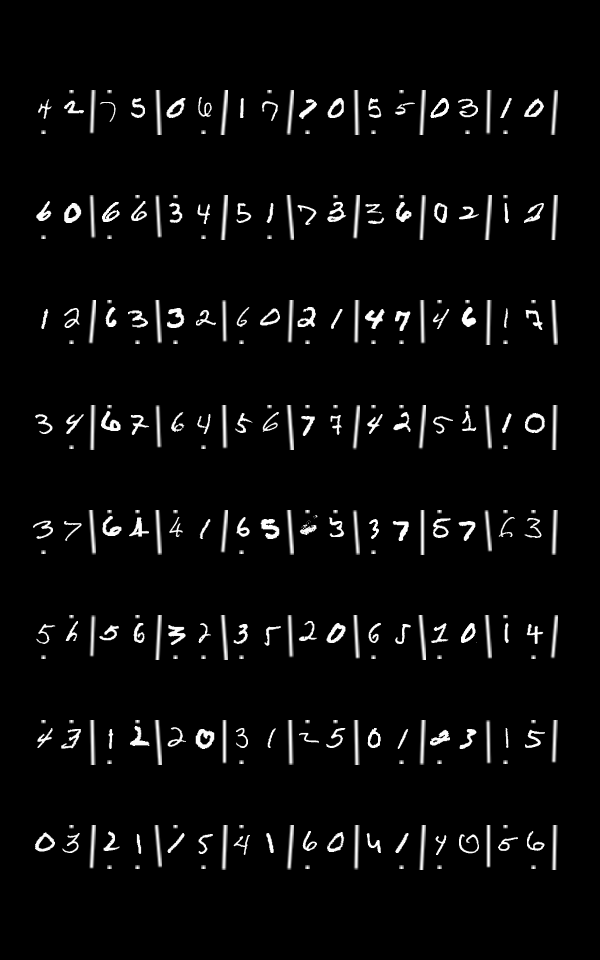 4 2 | 7 5 | 0 6 | 1 7 | 7 0 | 5 5 | 0 3 | 1 0 |
6 0 | 6 6 | 3 4 | 5 1 | 7 3 | 3 6 | 0 2 | 1 2 |
1 2 | 6 3 | 3 2 | 6 0 | 2 1 | 4 7 | 4 6 | 1 7 |
3 4 | 6 7 | 6 4 | 5 6 | 7 7 | 4 2 | 5 1 | 1 0 |
3 7 | 6 1 | 4 1 | 6 5 | 3 | 3 7 | 5 7 | 6 3 |
5 6 | 5 6 | 3 2 | 3 5 | 2 0 | 6 5 | 1 0 | 1 4 |
4 3 | 1 2 | 2 0 | 3 1 | 2 5 | 0 1 | 2 3 | 1 5 |
0 3 | 2 1 | 1 5 | 4 1 | 6 0 | 4 1 | 4 0 | 5 6 |